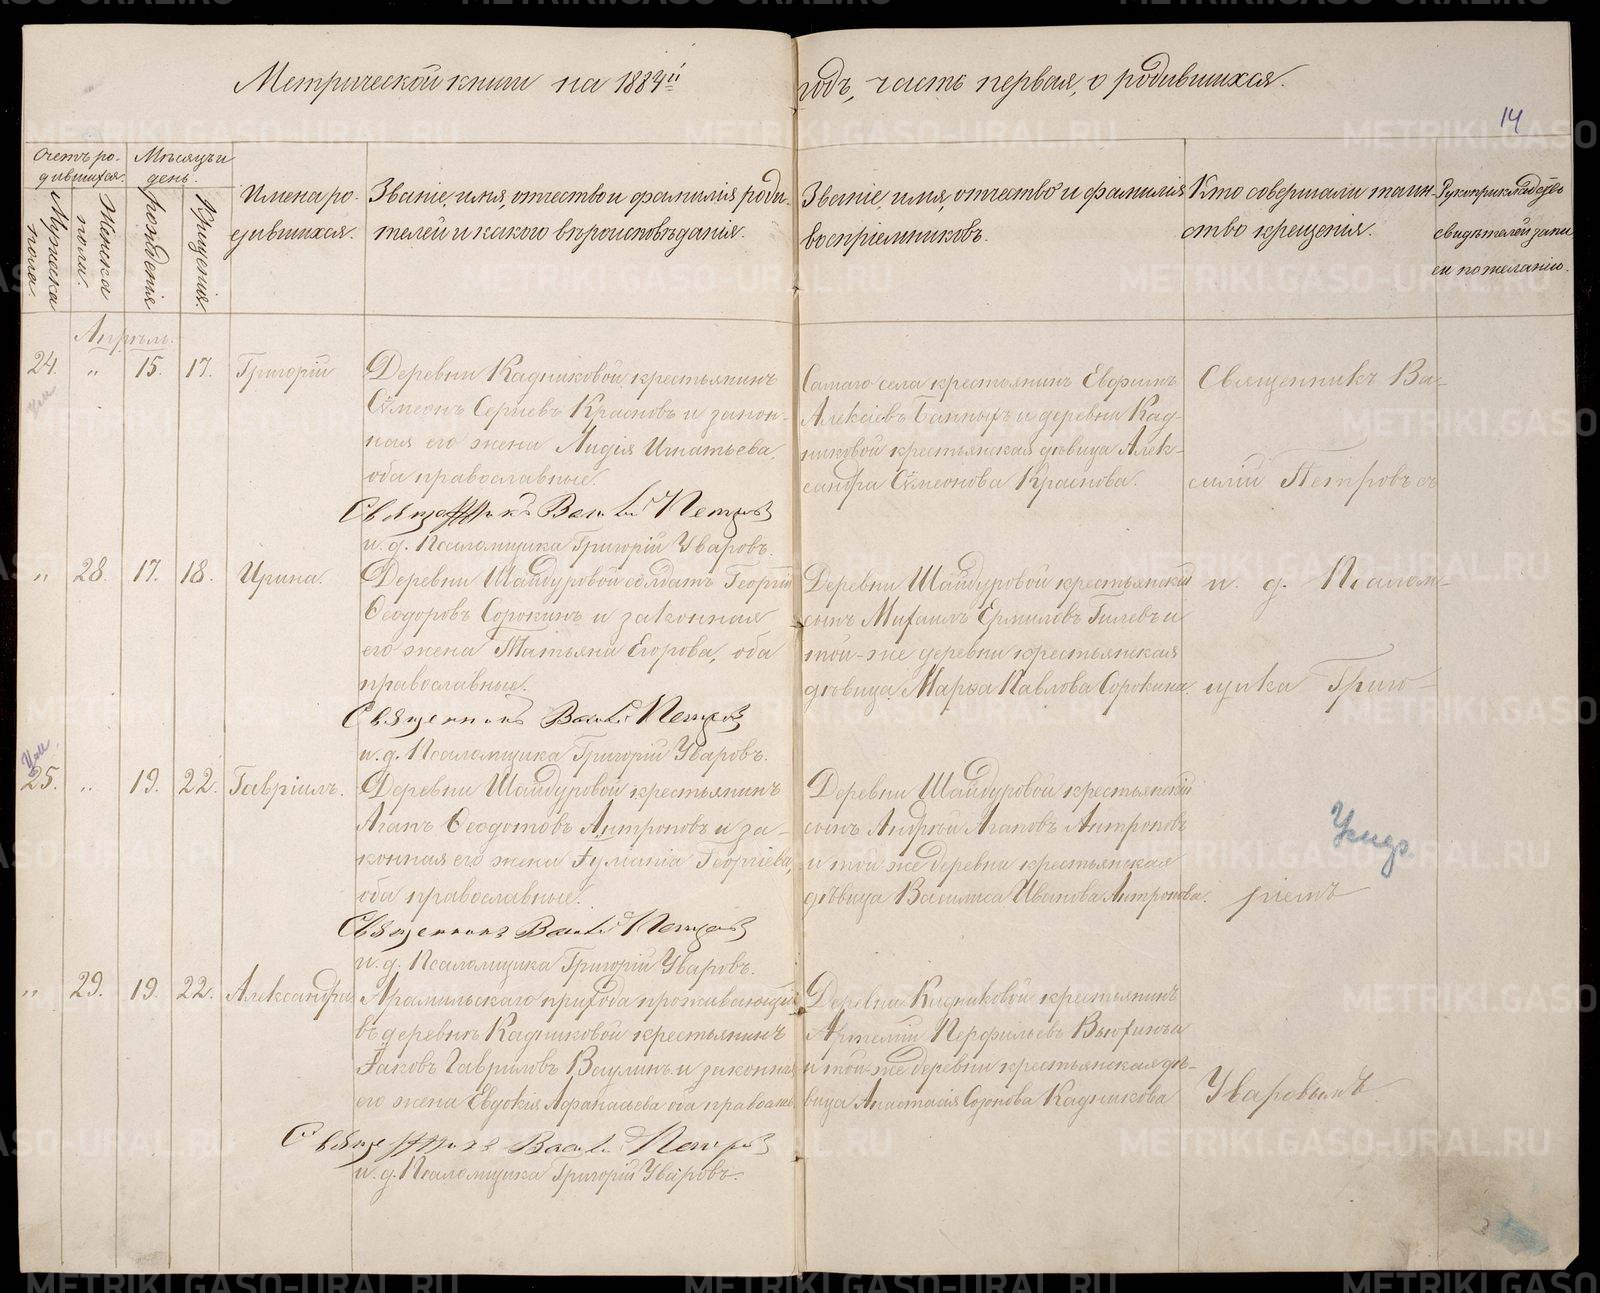 Метрической книги на 1884й годъ, часть первая, о родившихся.
14
Счетъ ро-
дившихся.
Мужска
пола.
Женска
пола.
Мѣсяцъ и
день.
рожденія
Крещенія.
Имена ро-
дившихся.
Званіе, имя, отчество и фамилія роди-
телей и какого вѣроисповѣданія.
Званіе, имя, отчество и фамилія
воспріемниковъ.
Кто совершали таин-
ство крещенія.
Рукоприкладство
свидѣтелей запи
си по желанію.
Апрѣль.
24. " 15. 17. Григорій
Деревни Кадниковой крестьянинъ
Сѵмеонъ Сергіевъ Красновъ и закон-
ная его жена Лидія Игнатьева,
оба православные.
Священникъ Василій Петровъ
и. д. Псаломщика Григорій Уваровъ.
Самаго села крестьянинъ Евфимъ
Алексіевъ Банныхъ и деревни Кад-
никовой крестьянская дѣвица Алек-
сандра Сѵмеонова Краснова.
Священникъ Ва-
силій Петровъ съ
" 28. 17. 18. Ирина.
Деревни Шайдуровой солдатъ Георгій
Ѳеодоровъ Сорокинъ и законная
его жена Татьяна Егорова, оба
православные.
Священникъ Василій Петровъ
и. д. Псаломщика Григорій Уваровъ.
Деревни Шайдуровой крестьянскій
сынъ Михаилъ Ермиловъ Гилевъ и
той-же деревни крестьянская
дѣвица Марѳа Павлова Сорокина.
и. д. Псалом-
щика Григо-
25. " 19. 22. Гавріилъ.
Деревни Шайдуровой крестьянинъ
Агапъ Ѳеодотовъ Антроповъ и за-
конная его жена Іуліанія Георгіева,
оба православные.
Священникъ Василій Петровъ
и. д. Псаломщика Григорій Уваровъ.
Деревни Шайдуровой крестьянскій
сынъ Андрей Агаповъ Антроповъ
и той же деревни крестьянская
дѣвица Василиса Иванова Антропова.
ріемъ
" 29. 19. 22. Александра
Арамильскаго прихода проживающій
въ деревнѣ Кадниковой крестьянинъ
Іаковъ Гавриловъ Ваулинъ и законная
его жена Евдокія Афанасьева оба православ.
Священникъ Василій Петровъ
и. д. Псаломщика Григорій Уваровъ.
Деревни Кадниковой крестьянинъ
Артемій Перфильевъ Вьюхинъ и
и той-же деревни крестьянская дѣ-
вица Анастасія Кадникова
Уваровымъ
METRIKI.GASO-URAL.RU